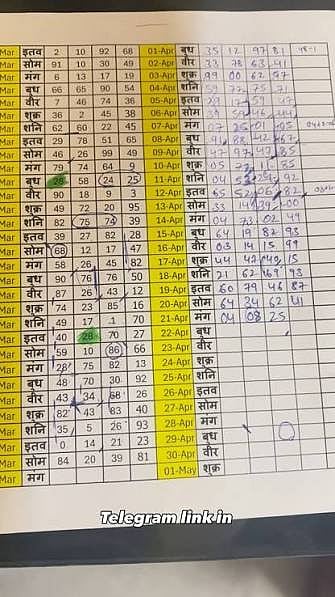 Mar इतव 2 10 92 68 01-Apr बुध 35 12 97 81 48-1
Mar सोम 91 10 30 49 02-Apr वीर 33 78 63 41
Mar मंग 6 13 17 19 03-Apr शुक्र 99 00 62 97
Mar बुध 66 65 90 54 04-Apr शनि 59 72 75 71
Mar वीर 7 46 74 36 05-Apr इतव 29 17 59 47
Mar शुक्र 36 2 45 38 06-Apr सोम 39 59 46 44
Mar शनि 62 60 22 45 07-Apr मंग 07 25 01 95
Mar इतव 29 78 51 65 08-Apr बुध 91 88 42 67
Mar सोम 46 26 99 49 09-Apr वीर 47 97 49 85
Mar मंग 79 74 64 9 10-Apr शुक्र 05 73 11 85
Mar बुध 26 58 24 25 11-Apr शनि 04 53 29 92
Mar वीर 90 18 9 3 12-Apr इतव 65 52 06 82
Mar शुक्र 49 22 20 95 13-Apr सोम 33 14 39 00
Mar शनि 82 75 74 39 14-Apr मंग 04 73 02 49
Mar इतव 39 27 82 28 15-Apr बुध 64 19 82 93
Mar सोम 68 12 17 47 16-Apr वीर 03 14 15 99
Mar मंग 58 26 45 82 17-Apr शुक्र 44 42 40 15
Mar बुध 90 76 76 50 18-Apr शनि 21 62 69 93
Mar वीर 87 26 43 12 19-Apr इतव 60 79 46 87
Mar शुक्र 74 23 85 16 20-Apr सोम 64 34 62 41
Mar शनि 49 17 1 70 21-Apr मंग 04 08 25
Mar इतव 40 28 70 27 22-Apr बुध
Mar सोम 59 10 86 66 23-Apr वीर
Mar मंग 28 75 82 13 24-Apr शुक्र
Mar बुध 48 70 30 92 25-Apr शनि
Mar वीर 43 34 68 26 26-Apr इतव
Mar शुक्र 82 43 63 40 27-Apr सोम
Mar शनि 35 5 26 93 28-Apr मंग
Mar इतव 0 14 21 23 29-Apr बुध
Mar सोम 84 20 39 81 30-Apr वीर
Mar मंग 01-May शुक्र
Telegram link in